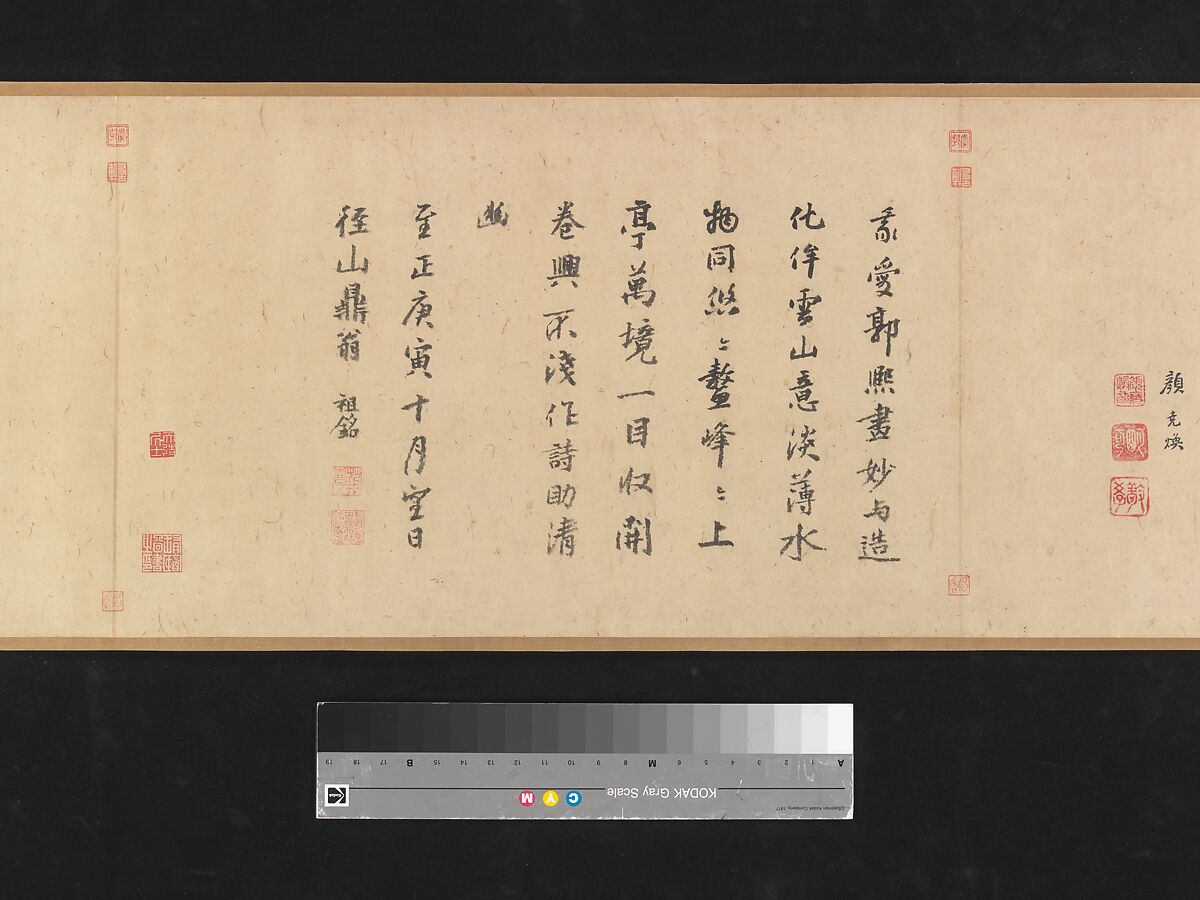 顏克煥
我愛郭熙畫妙与造
化侔雲山意淡薄水
物同悠〻鼇峰〻上
亭萬境一目収開
卷興不淺作詩助清
幽
至正庚寅十月望日
徑山鼎翁 祖銘
KODAK Gray Scale
C Y M
©Eastman Kodak Company, 1977
A 1 2 3 4 5 6 M 8 9 10 11 12 13 14 15 B 17 18 19